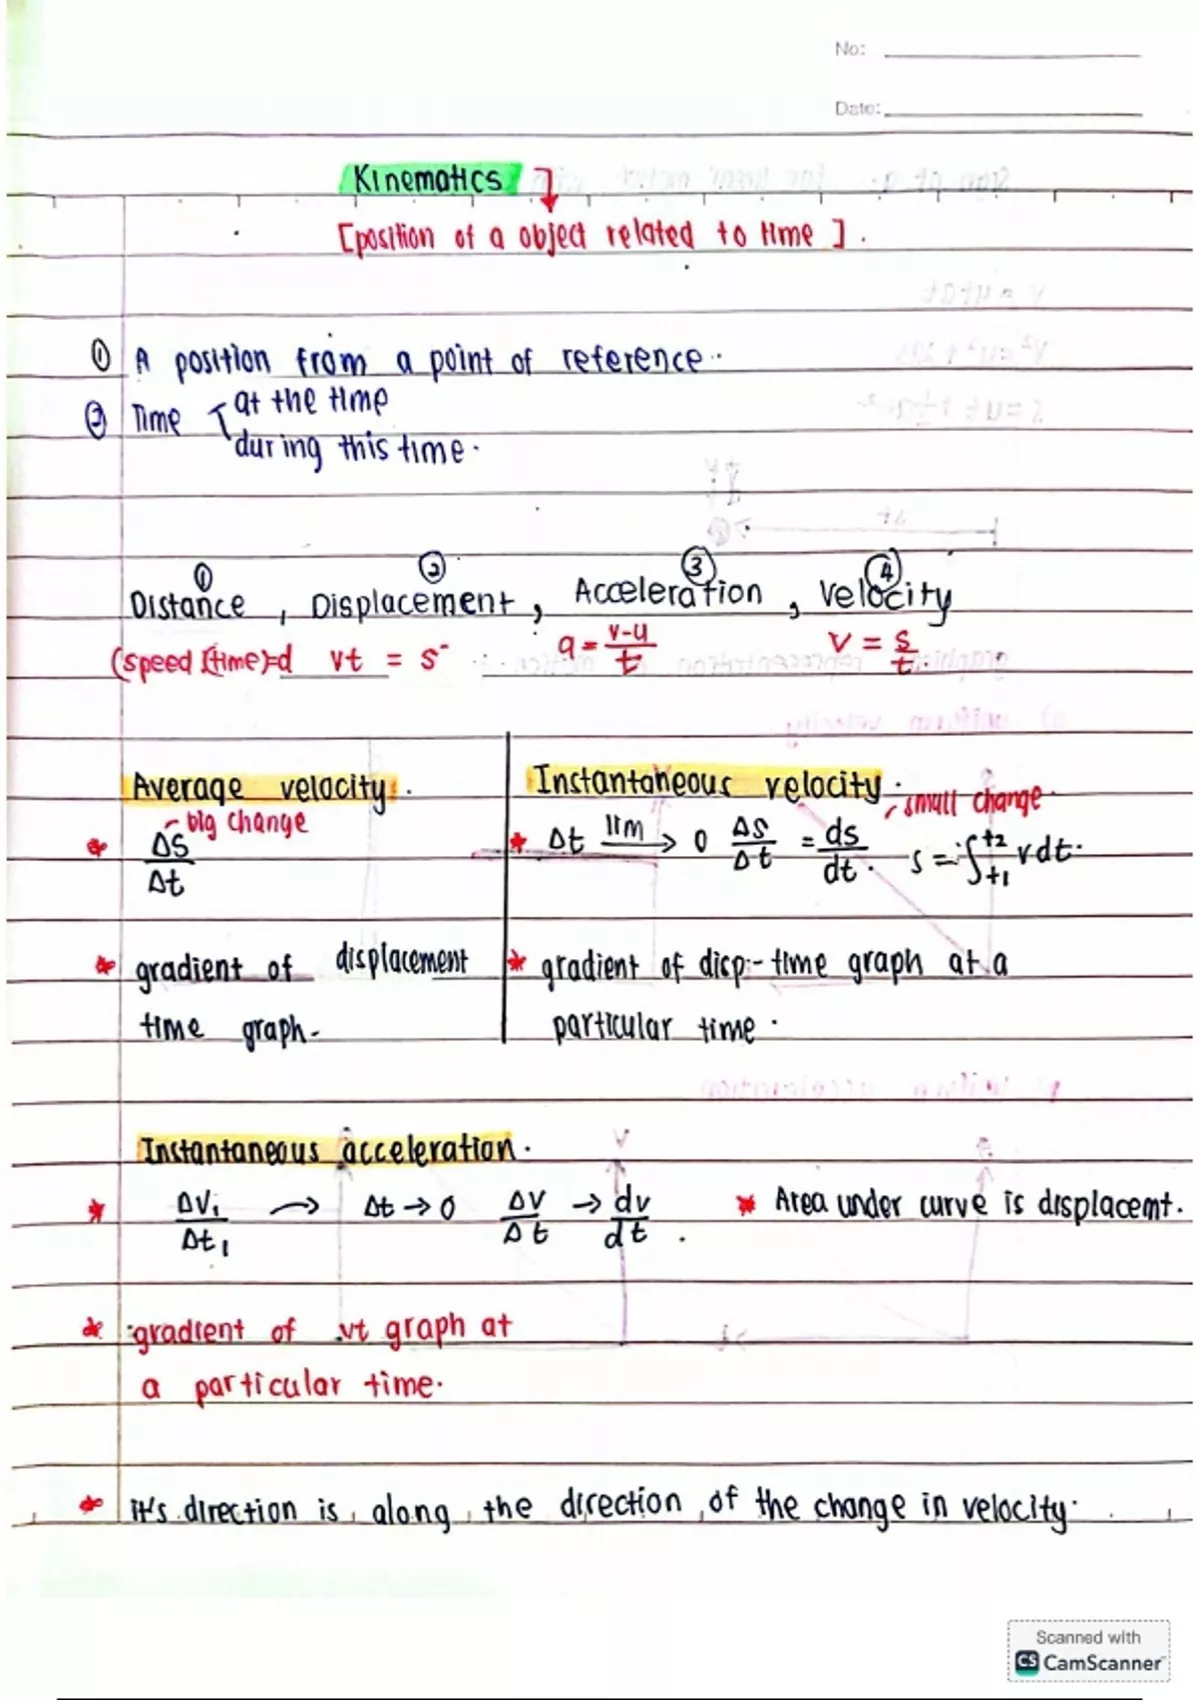 No:
Date:
Kinematics
[position of a object related to time].
① A position from a point of reference.
② Time { at the time
during this time.
① ② ③ ④
Distance, Displacement, Acceleration, Velocity
(speed)(time)=d vt = s a = v-u/t v = s/t.
Average velocity. Instantaneous velocity.
big change small change
* Δs/Δt * Δt lim → 0 Δs/Δt = ds/dt. s = ∫t1^t2 v dt.
* gradient of displacement * gradient of disp - time graph at a
time graph. particular time.
Instantaneous acceleration.
* ΔV1/Δt1 → Δt → 0 ΔV/Δt → dv/dt. * Area under curve is displacemt.
* gradient of vt graph at
a particular time.
* it's direction is along the direction of the change in velocity.
Scanned with
CS CamScanner